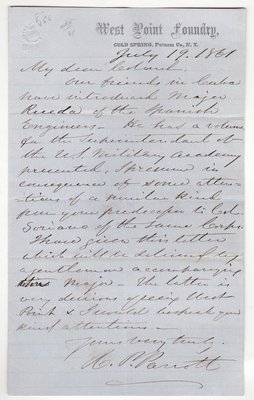 West Point Foundry,
COLD SPRING, Putnam Co., N.Y.
July 19. 1861
My dear Colonel.
Our friends in Cuba
have introduced Major
Rueda of the Spanish
Engineers. He has a volume
for the Superintendent of
the U.S. Military Academy
presented, I presume in
consequence of some atten-
tion of a similar kind
from your predecessor to Col.
Soriano of the same Corps.
I have given this letter
which will be delivered by
a gentleman accompanying
Major - The latter is
very desirous of seeing West
Point & I would bespeak your
kind attentions -
Yours very truly,
R. P. Parrott